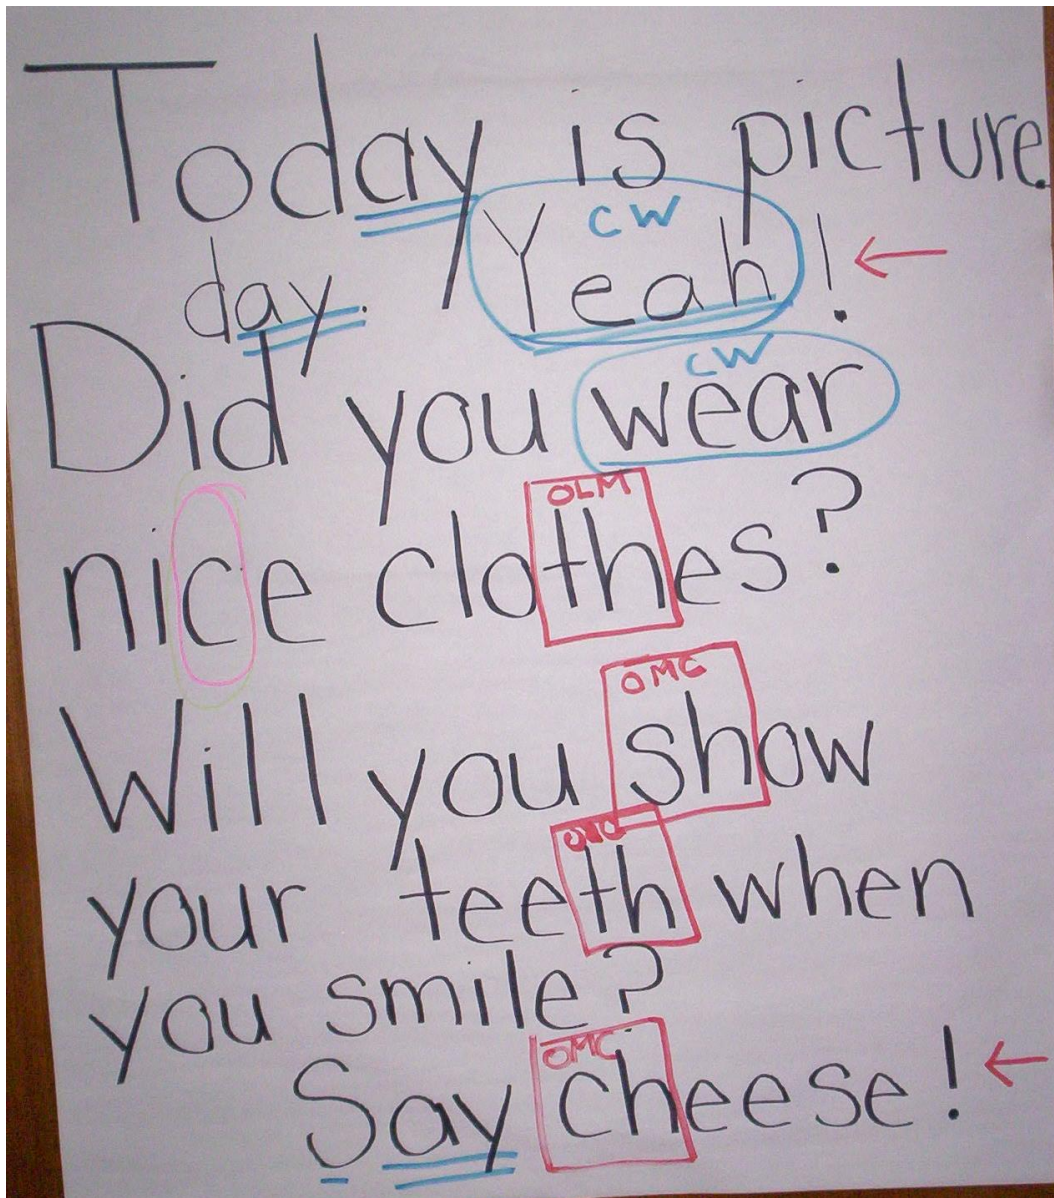 Today is picture
CW
day. Yeah!
CW
Did you wear
OLM
nice clothes?
OMC
Will you show
OMC
your teeth when
you smile?
OMC
Say cheese!